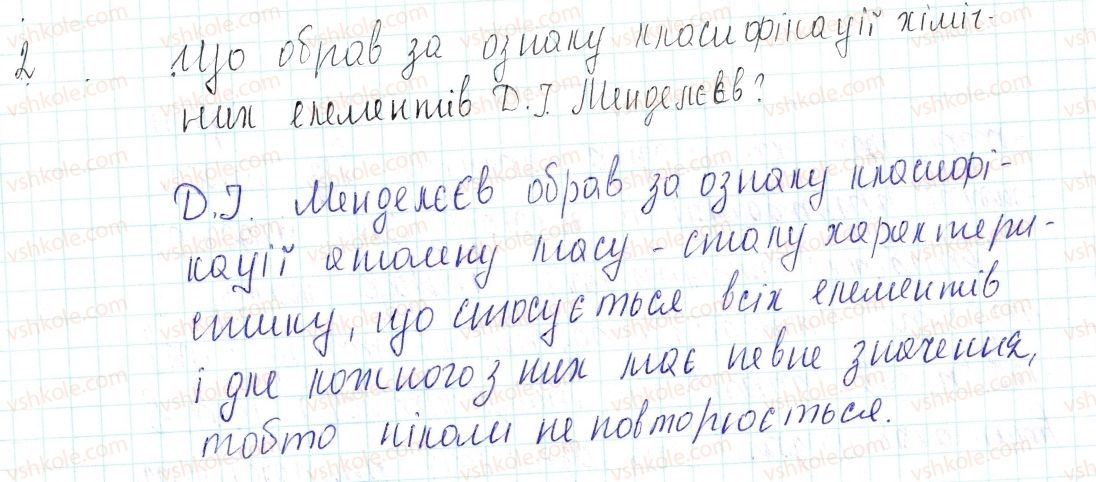 2 . Що обрав за ознаку класифікації хіміч-
них елементів Д.І. Менделєєв?
Д.І. Менделєєв обрав за ознаку класифі-
кації атомну масу - сталу характери-
стику, що стосується всіх елементів
і для кожного з них має певне значення,
тобто ніколи не повторюється.